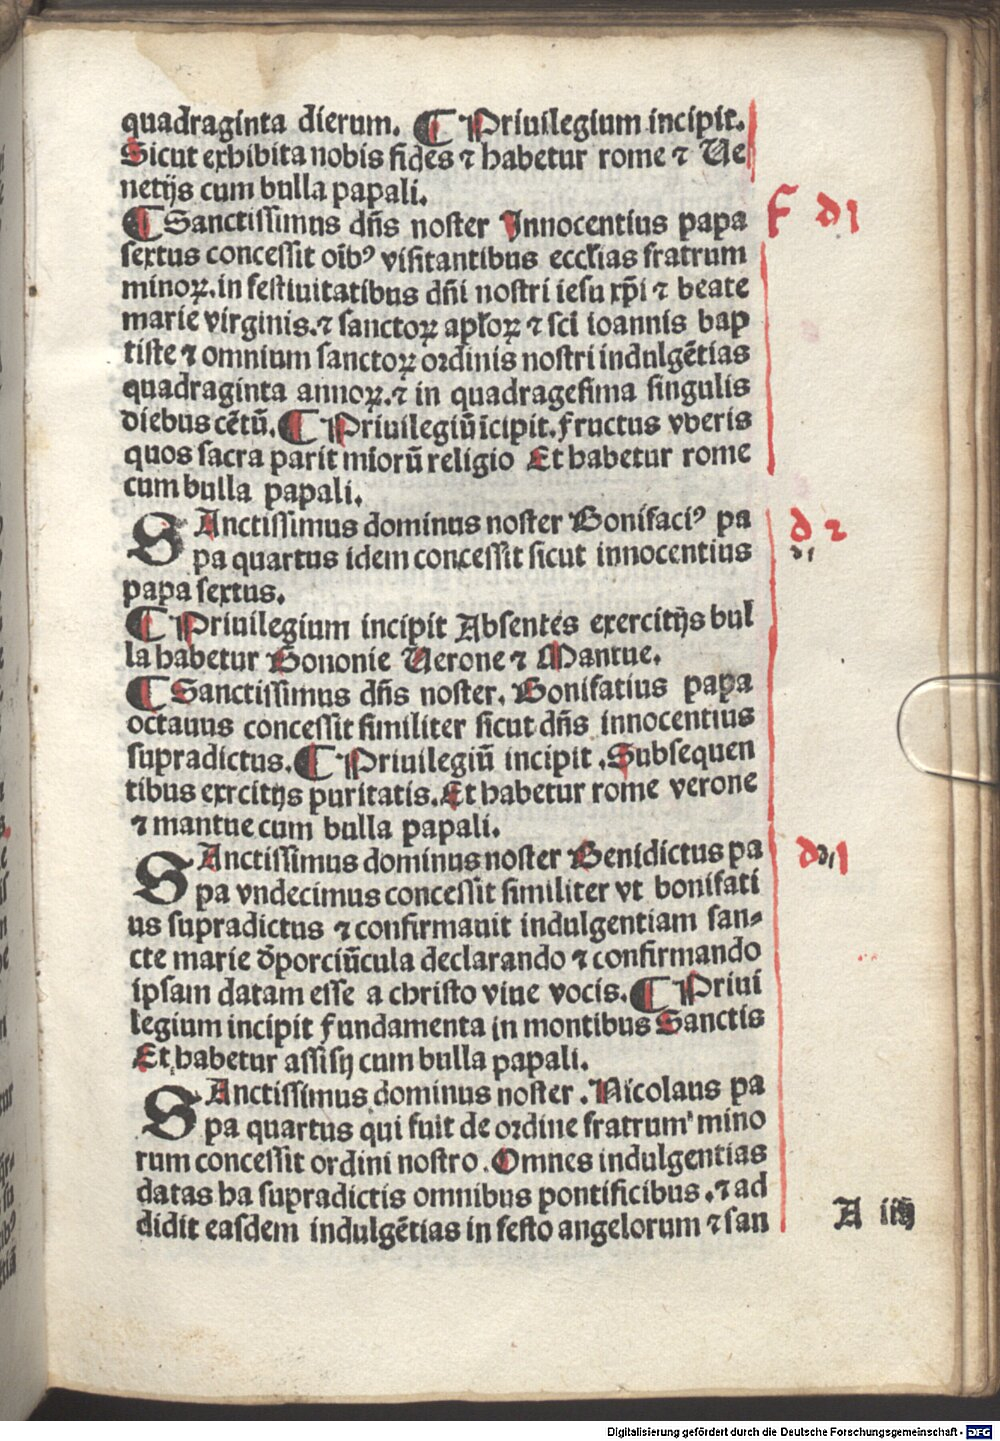 quadraginta dierum. ¶ Priuilegium incipit.
Sicut exhibita nobis fides ⁊ habetur rome ⁊ Ue
netijs cum bulla papali.
¶ Sanctissimus dn̄s noster Innocentius papa
sextus concessit oīb⁹ visitantibus eccl̄ias fratrum
minoꝝ. in festiuitatibus dn̄i nostri iesu xp̄i ⁊ beate
marie virginis. ⁊ sanctoꝝ apl̄oꝝ ⁊ sc̄i ioannis bap
tiste ⁊ omnium sanctoꝝ ordinis nostri indulgētias
quadraginta annoꝝ. ⁊ in quadragesima singulis
diebus cētū. ¶ Priuilegiū īcipit. fructus vberis
quos sacra parit mīorū religio Et habetur rome
cum bulla papali.
SAnctissimus dominus noster Bonifaci⁹ pa
pa quartus idem concessit sicut innocentius
papa sextus.
¶ Priuilegium incipit Absentes exercitijs bul
la habetur Bononie Uerone ⁊ Mantue.
¶ Sanctissimus dn̄s noster. Bonifatius papa
octauus concessit similiter sicut dn̄s innocentius
supradictus. ¶ Priuilegiū incipit . Subsequen
tibus exrcitijs puritatis. Et habetur rome verone
⁊ mantue cum bulla papali.
SAnctissimus dominus noster Benidictus pa
pa vndecimus concessit similiter vt bonifati
us supradictus ⁊ confirmauit indulgentiam san-
cte marie d̄ porciūcula declarando ⁊ confirmando
ipsam datam esse a christo viue vocis. ¶ Priui
legium incipit fundamenta in montibus Sanctis
Et habetur assisij cum bulla papali.
SAnctissimus dominus noster . Nicolaus pa
pa quartus qui fuit de ordine fratrum mino
rum concessit ordini nostro . Omnes indulgentias
datas ha supradictis omnibus pontificibus . ⁊ ad
didit easdem indulgētias in festo angelorum ⁊ san
A iiij
F d1
d 2
d1
Digitalisierung gefördert durch die Deutsche Forschungsgemeinschaft - DFG